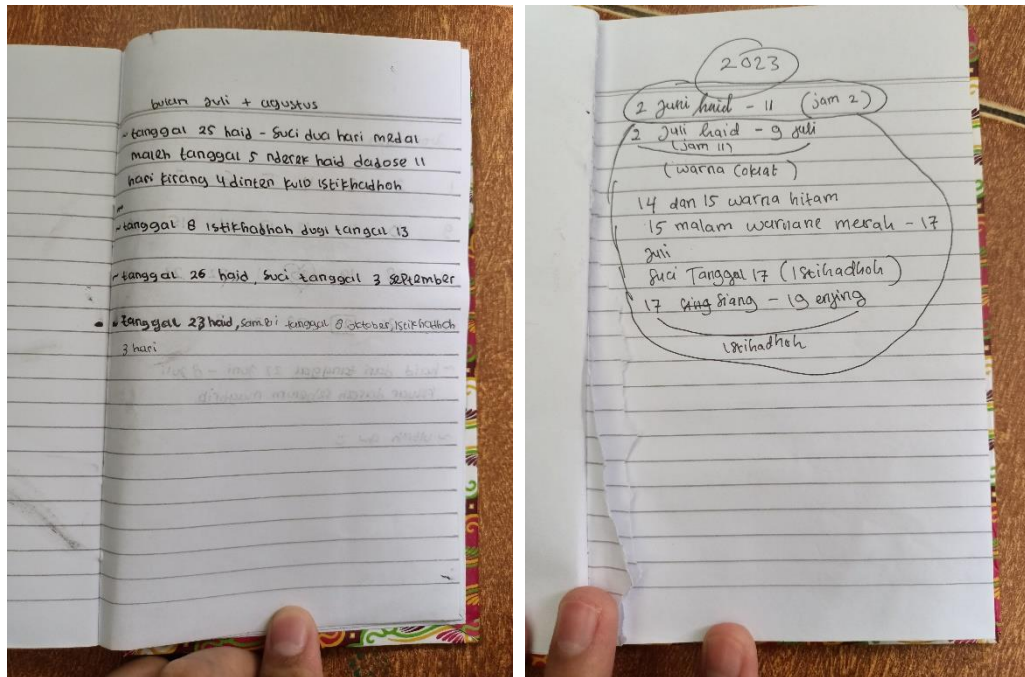 bulan Juli + agustus
- tanggal 25 haid - Suci dua hari medal
maleh tanggal 5 nderek haid dadose 11
hari kirang 4 dinten kulo istikhadhoh
~
- tanggal 8 istikhadhoh dugi tanggal 13
- tanggal 26 haid, Suci tanggal 3 September
- tanggal 23 haid, sambi tanggal 8 oktober, istikhadhoh
3 hari
2023
2 Juni haid - 11 (jam 2)
2 Juli haid - 9 juli
(jam 11)
(warna Coklat)
14 dan 15 warna hitam
15 malam warnane merah - 17
Juli
Suci Tanggal 17 (Istihadhoh)
17 siang - 19 enjing
istihadhoh